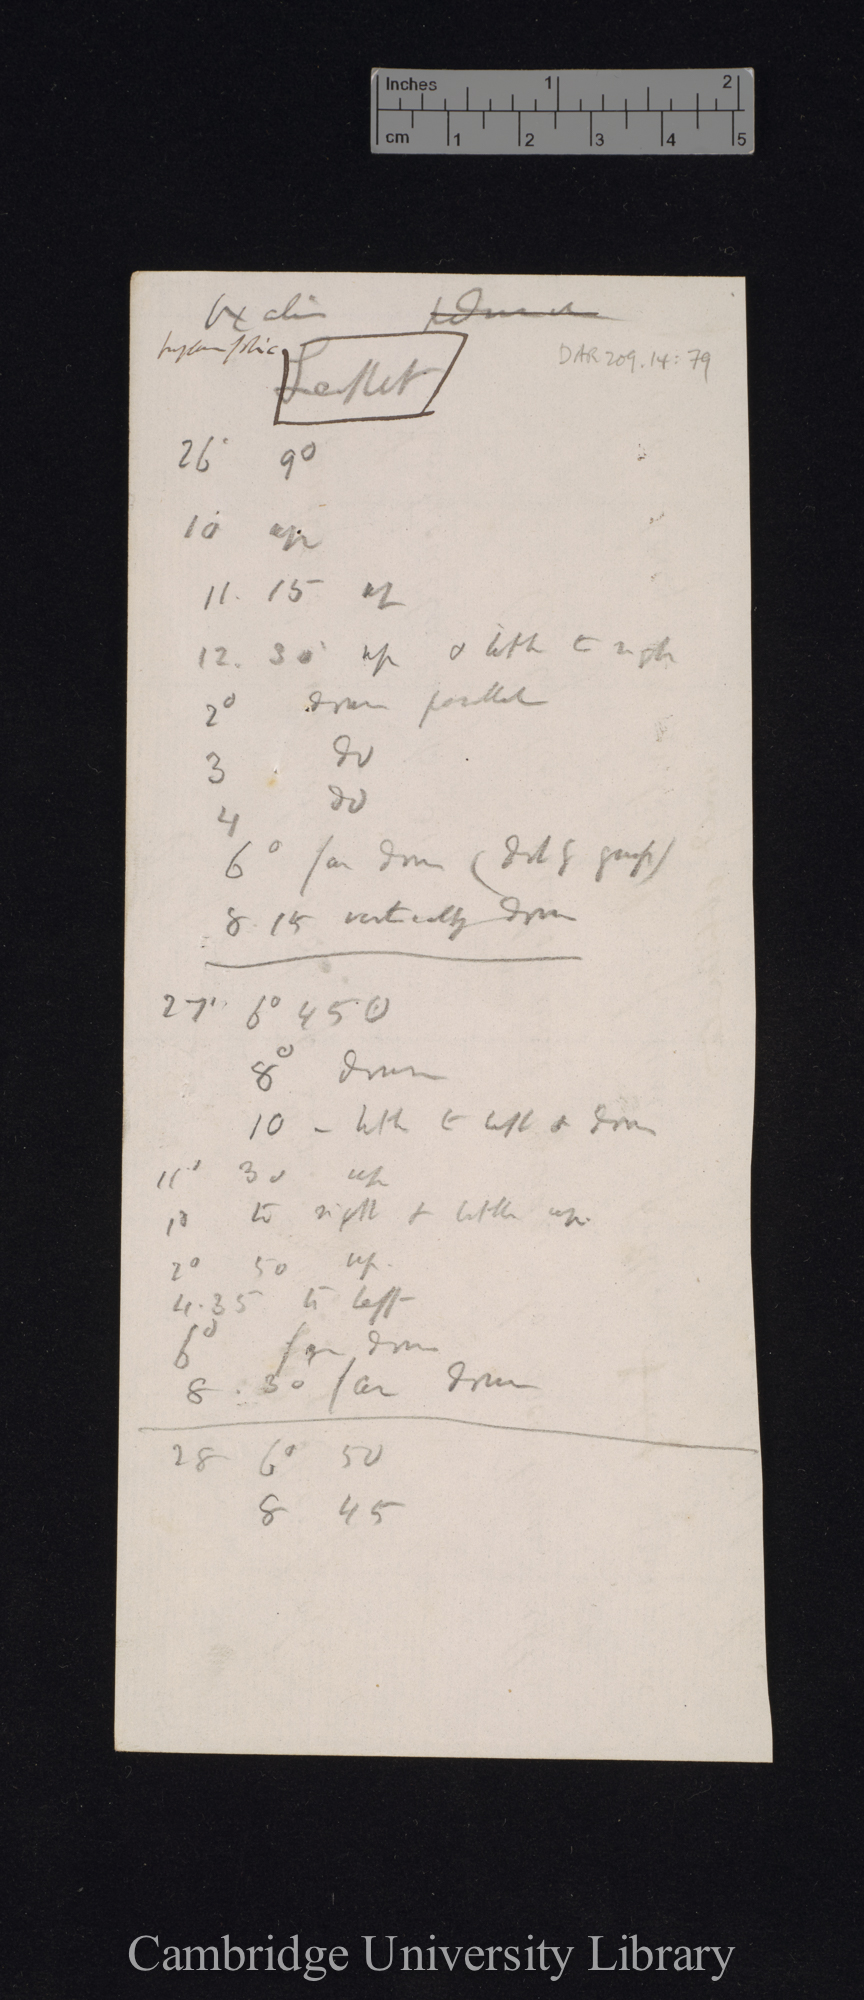 Inches 1 2
cm 1 2 3 4 5
Oxalis
DAR 209.14:79
Leaflet
26° 9°
10 up
11. 15 up
12. 30 up & little to right
2° down parallel
3 do
4 do
6° far down
8. 15 vertically down
27° 6° 45
8° down
10 – little to left & down
11° 30 up
1° to right & little up.
2° 50 up.
4.35 to left
6° far down
8. 30 far down
28 6° 50
8 45
Cambridge University Library